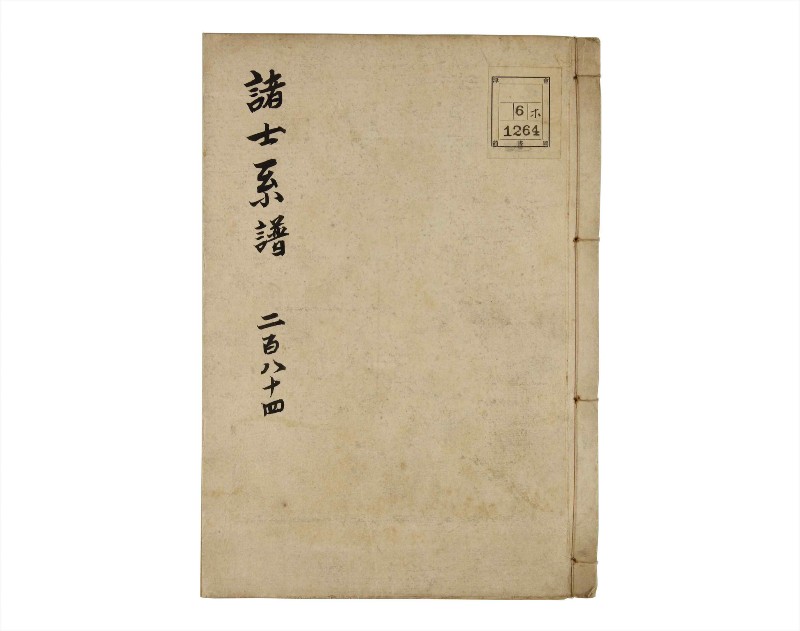 諸士系譜
二百八十四
6 ホ
1264